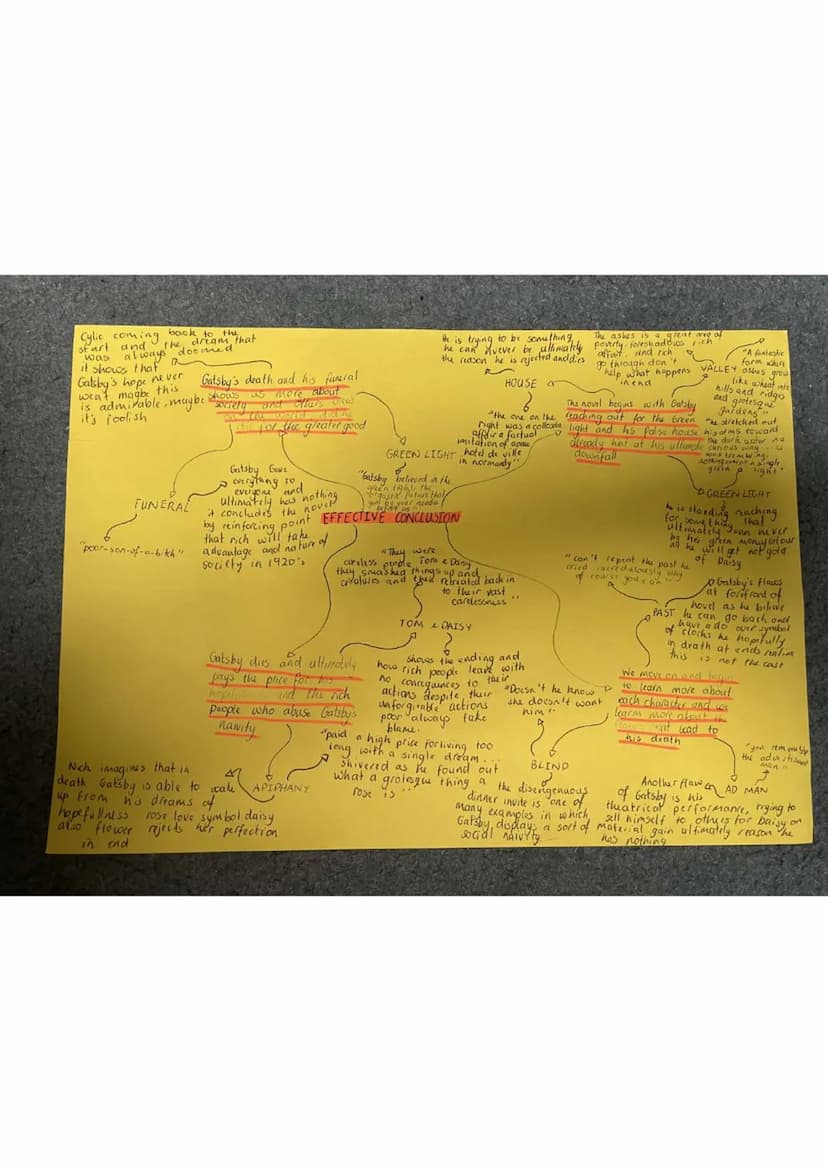 Cylic coming back to the
start and the dream that
was always doomed
it shows that
Gatsby's hope never
went, maybe this
is admirable, maybe
it's foolish
Gatsby's death and his funeral
shows us more about
society and others view
for the greater good
GREEN LIGHT
"Gatsby believed in the
green light, the
orgastic future that
year by year recedes
before us"
FUNERAL
"poor-son-of-a-bitch"
Gatsby Gave
everything to
everyone and
ultimately has nothing
it concludes the novel
by reinforcing point
that rich will take
advantage and nature of
society in 1920's
EFFECTIVE CONCLUSION
He is trying to be something
he can never be, ultimately
the reason he is rejected and dies
HOUSE
"the one on the
right was a collosal
affair a factual
imitation of some
hotel de ville
in normandy"
The ashes is a great area of
poverty, foreshadows rich
affair, and rich
go through don't
help what happens
in end
VALLEY
"A fantastic
farm where
ashes grow
like wheat into
hills and ridges
and grotesque
gardens"
The novel begins with Gatsby
reaching out for the Green
light and his false house
already hint at his ultimate
downfall
"he stretched out
his arms toward
the dark water in a
curious way.
was trembling.
nothing except a single
green light"
GREEN LIGHT
he is standing reaching
for something that
ultimately can never
be his green money colour
all he will get not gold
of Daisy
"They were
careless people Tom & Daisy
they smashed things up and
creatures and then retreated back in
to their vast
carelessness"
TOM & DAISY
shows the ending and
how rich people leave with
no consequences to their
actions despite their
unforgivable actions
poor always take
blame.
Gatsby dies and ultimately
pays the price for his
and the rich
people who abuse Gatsbys
naivity
APIPHANY
"paid a high price for living too
long with a single dream...
shivered as he found out
what a grotesque thing a
rose is"
Nick imagines that in
death Gatsby is able to wake
up from his dreams of
hopefullness rose love symbol daisy
also flower rejects her perfection
in end
"can't repeat the past he
cried incredulously why
of course you can"
PAST
Gatsby's flaws
at forefront of
novel as he believe
he can go back and
have a do over symbol
of clocks he hopefully
in death at ends realise
this is not the case
We move on and begin
to learn more about
each character and we
learn more about the
that lead to
his death
"Doesn't he know
she doesn't want
him?"
BLIND
the disengenuous
dinner invite is one of
many examples in which
Gatsby displays a sort of
social naivity
AD MAN
the advertisement
man"
Another flaw
of Gatsby is his
theatrical performance, trying to
sell himself to others for Daisy on
material gain ultimately reason he
has nothing